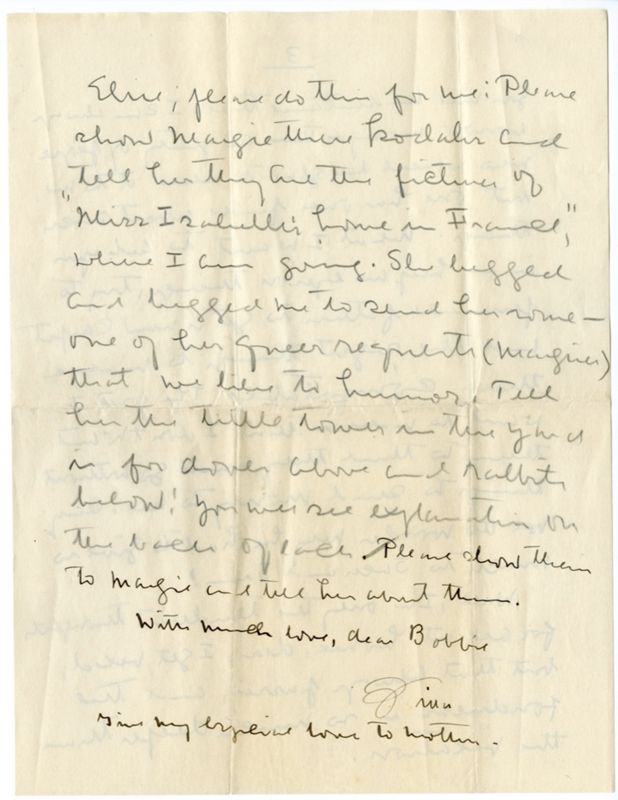 Elsie, please do this for me: Please
show Margie these kodaks and
tell her they are the pictures of
"Miss Izabelle's home in France",
where I am going. She begged
and begged me to send her some—
one of her queer requests (Margie's)
that we like to humor. Tell
her the little tower in the yard
is for doves above and rabbits
below! You will see explanation on
the back of each. Please show them
to Margie and tell her about them.
With much love, dear Bobbie

Give my especial love to Mother.